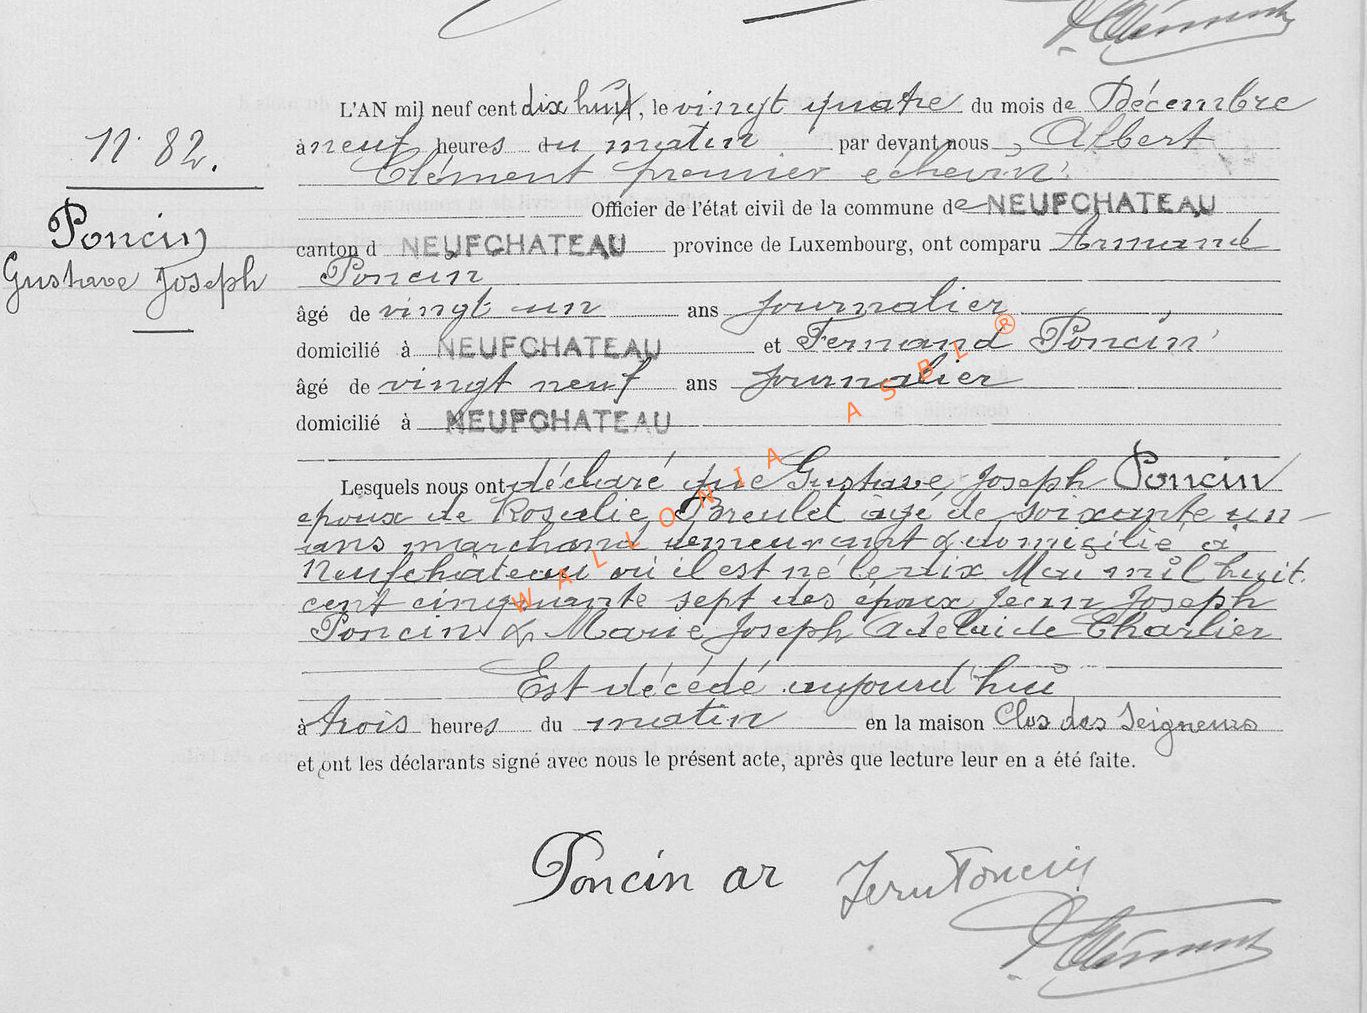 Clément
L'AN mil neuf cent dix huit, le vingt quatre du mois de Décembre
à neuf heures du matin par devant nous, Albert
Clément premier échevin
Officier de l'état civil de la commune de NEUFCHATEAU
canton d NEUFCHATEAU province de Luxembourg, ont comparu Armand
Poncin
âgé de vingt un ans journalier
domicilié à NEUFCHATEAU et Fernand Poncin
âgé de vingt neuf ans journalier
domicilié à NEUFCHATEAU
Lesquels nous ont déclaré que Gustave Joseph Poncin
époux de Rosalie Breulet âgé de soixante un
ans marchand demeurant & domicilié à
Neufchateau où il est né le dix Mai mil huit
cent cinquante sept des époux Jean Joseph
Poncin & Marie Joseph Adelaïde Charlier
Est décédé aujourd'hui
à trois heures du matin en la maison Clos des Seigneurs
et ont les déclarants signé avec nous le présent acte, après que lecture leur en a été faite.
N° 82.
Poncin
Gustave Joseph
Poncin ar
Fern Poncin
Clément
WALLONIA ASBL ®